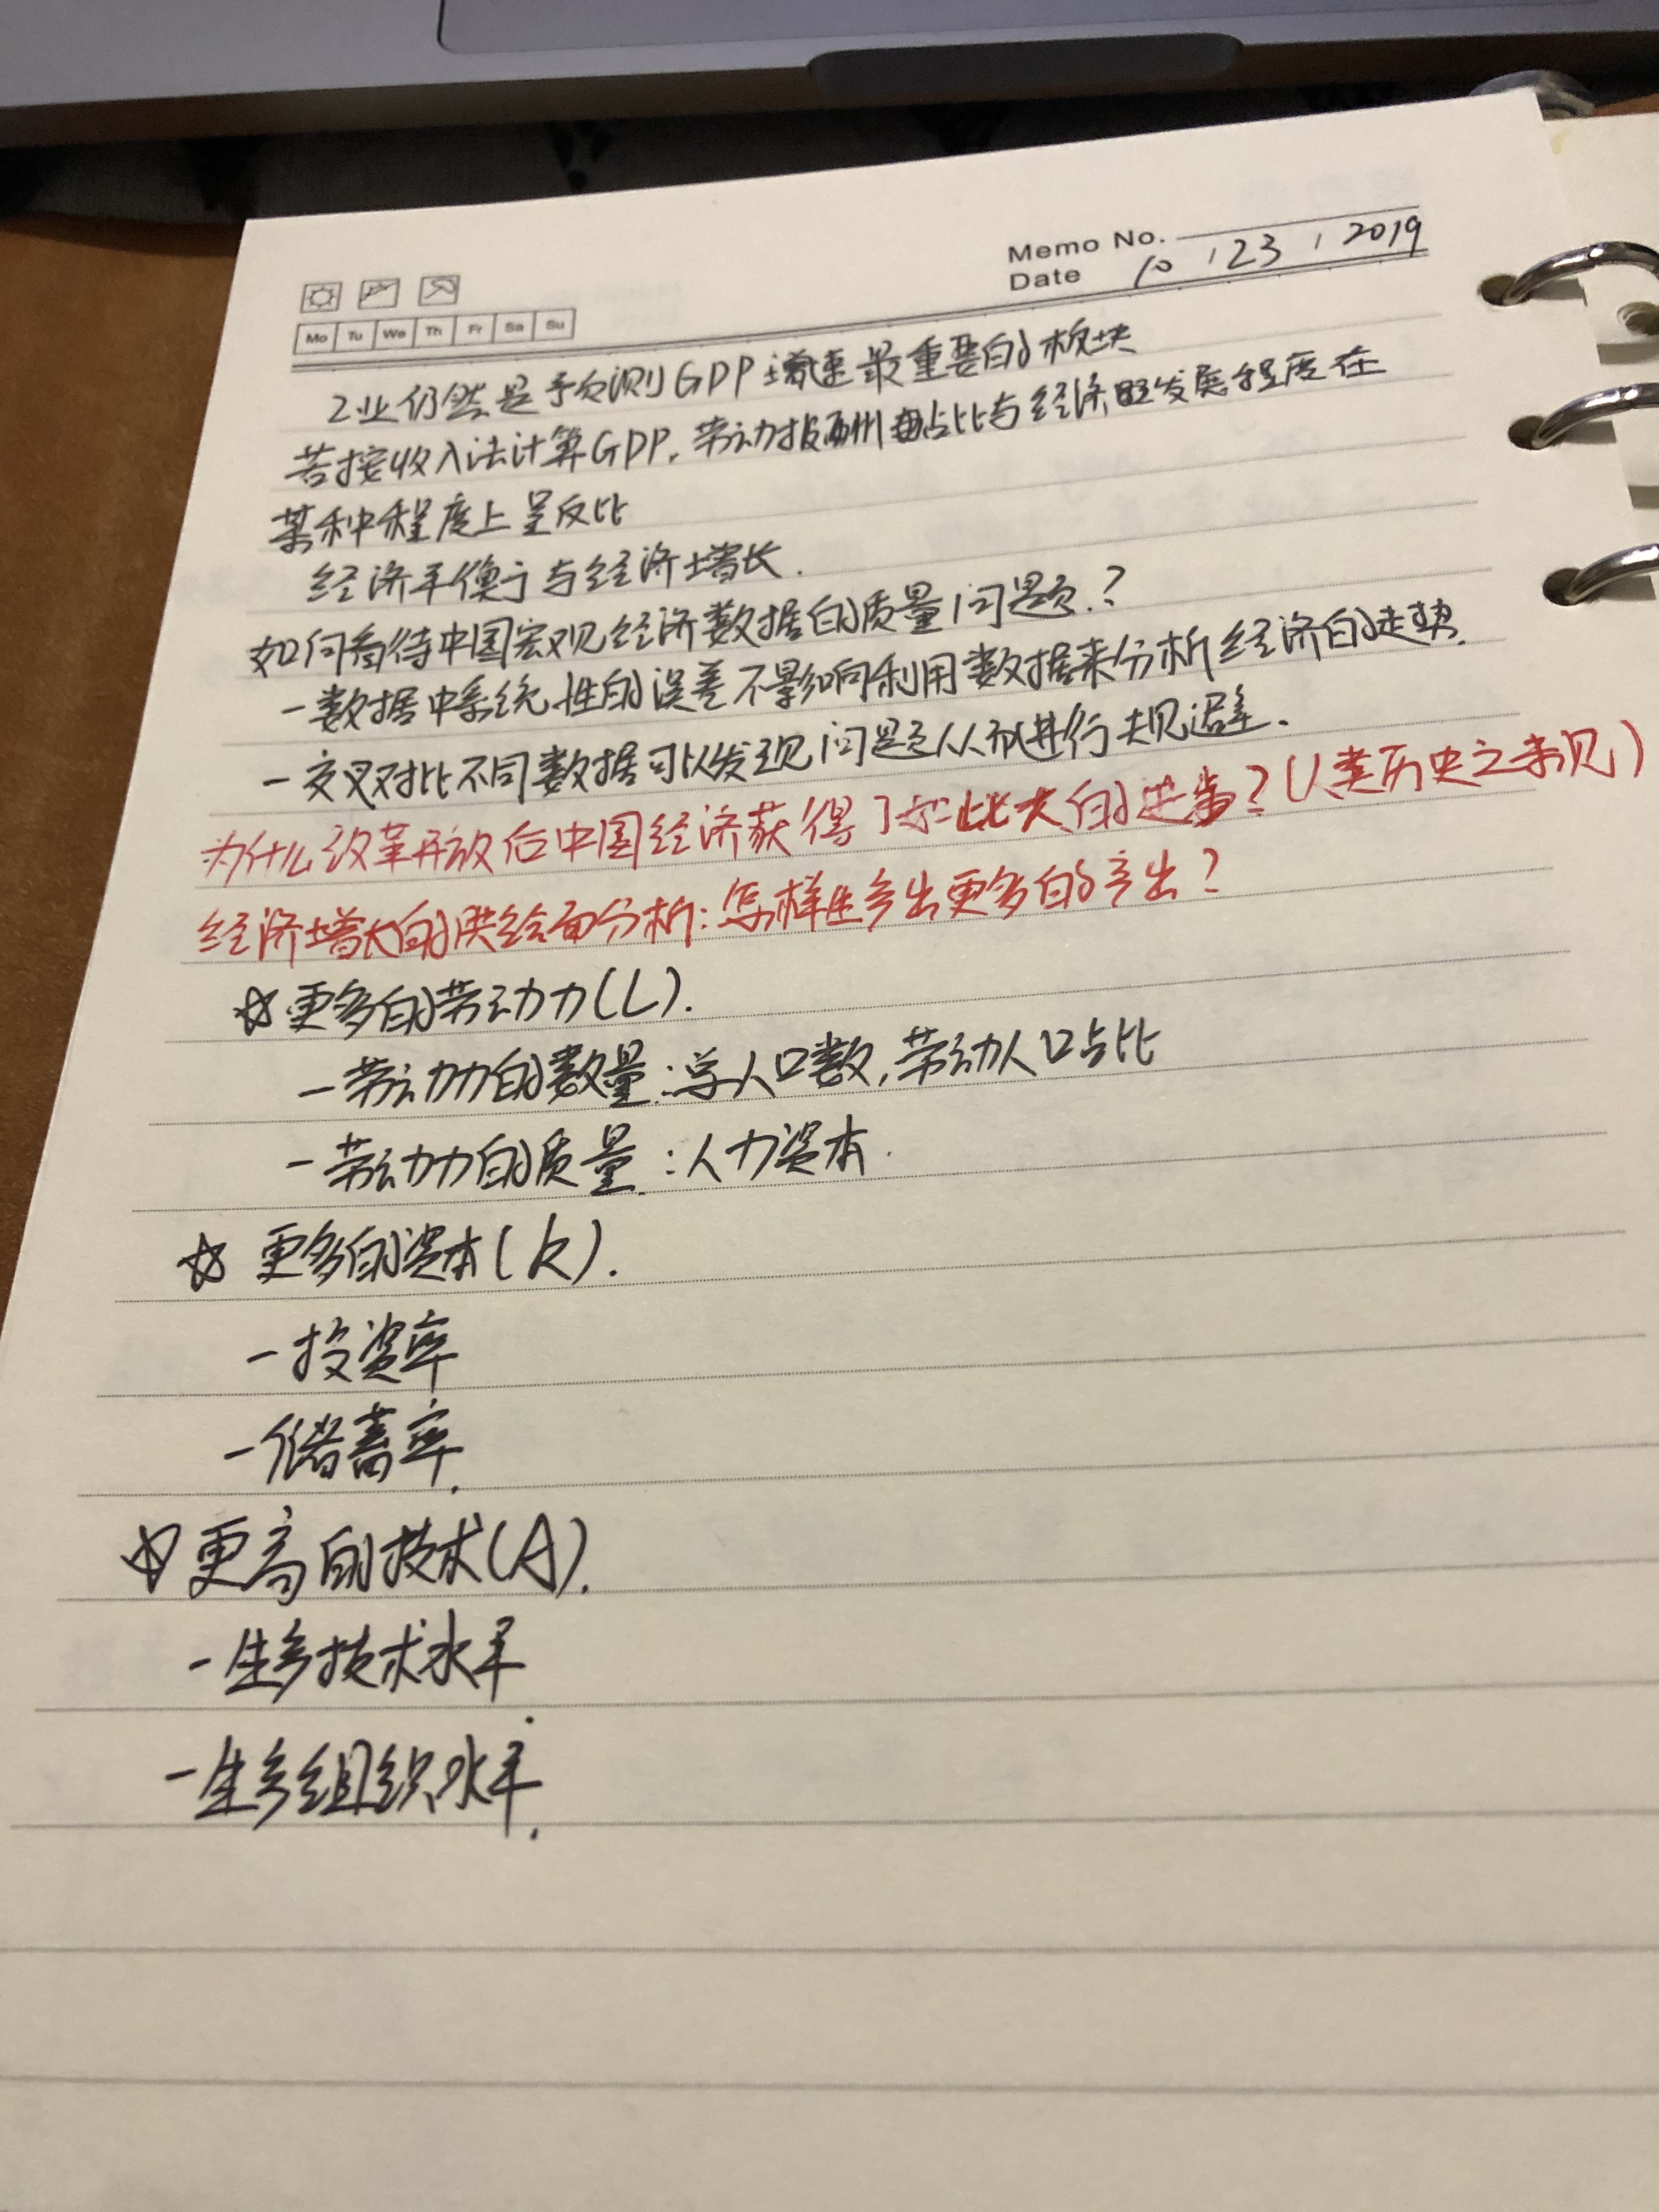 Memo No.
Date 10 / 23 / 2019
Mo Tu We Th Fr Sa Su
工业仍然是予负测GDP增速最重要的板块
若按收入法计算GDP,劳动报酬占比与经济发展程度在
某种程度上呈反比
经济平衡与经济增长.
如何看待中国宏观经济数据的质量问题?
-数据中系统性的误差不影响利用数据来分析经济的走势.
-交叉对比不同数据可以发现问题从而进行规避.
为什么改革开放后中国经济获得了如此大的进步?(人类历史之未见)
经济增长的供给面分析:怎样生产出更多的产出?
☆更多的劳动力(L).
-劳动力的数量:总人口数,劳动人口占比
-劳动力的质量:人力资本.
☆ 更多的资本(K).
-投资率
-储蓄率.
☆更高的技术(A).
-生产技术水平
-生产组织水平.